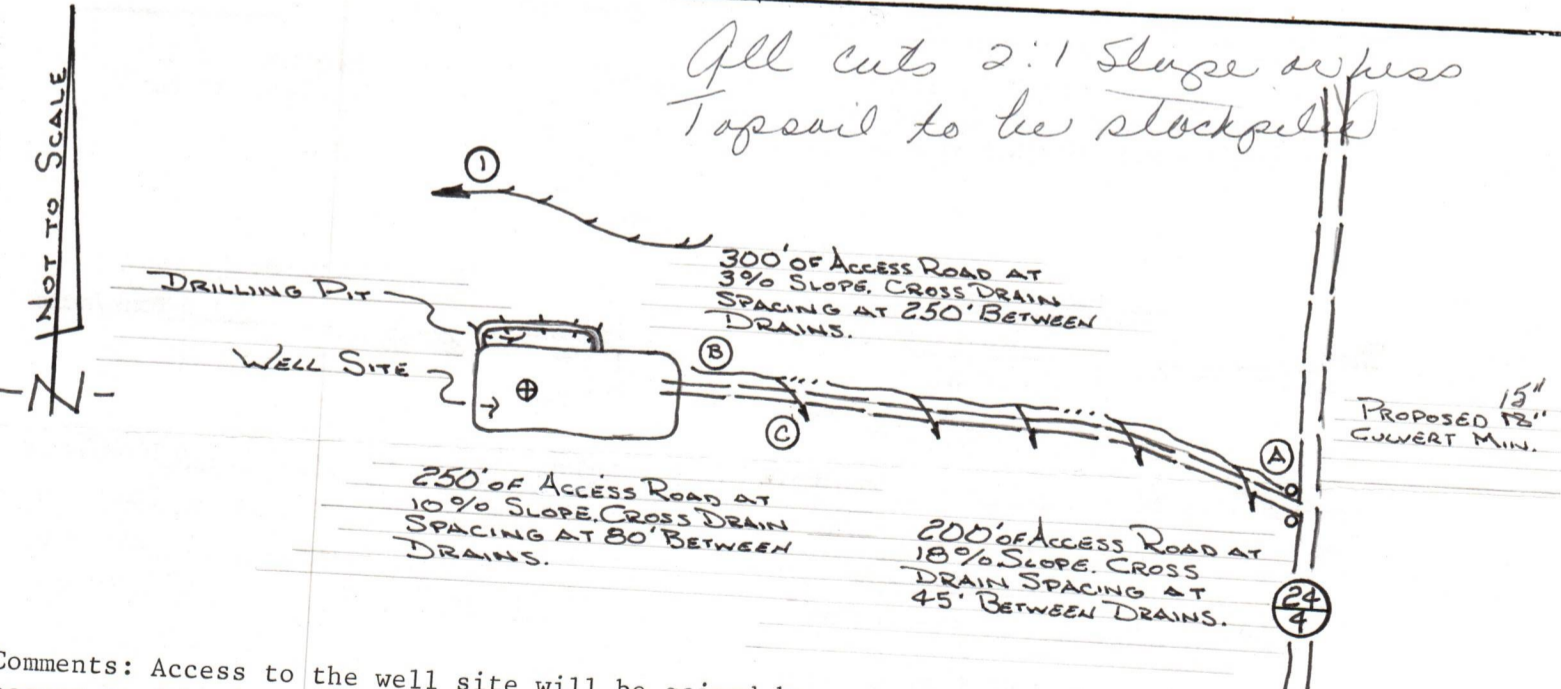 All cuts 2:1 Slope or less
Topsoil to be stockpiled
NOT TO SCALE
-N-
1
300' OF ACCESS ROAD AT
3% SLOPE. CROSS DRAIN
SPACING AT 250' BETWEEN
DRAINS.
DRILLING PIT
WELL SITE
B
C
A
15"
PROPOSED 18"
CULVERT MIN.
250' OF ACCESS ROAD AT
10% SLOPE. CROSS DRAIN
SPACING AT 80' BETWEEN
DRAINS.
200' OF ACCESS ROAD AT
18% SLOPE. CROSS
DRAIN SPACING AT
45' BETWEEN DRAINS.
24
4
Comments: Access to the well site will be